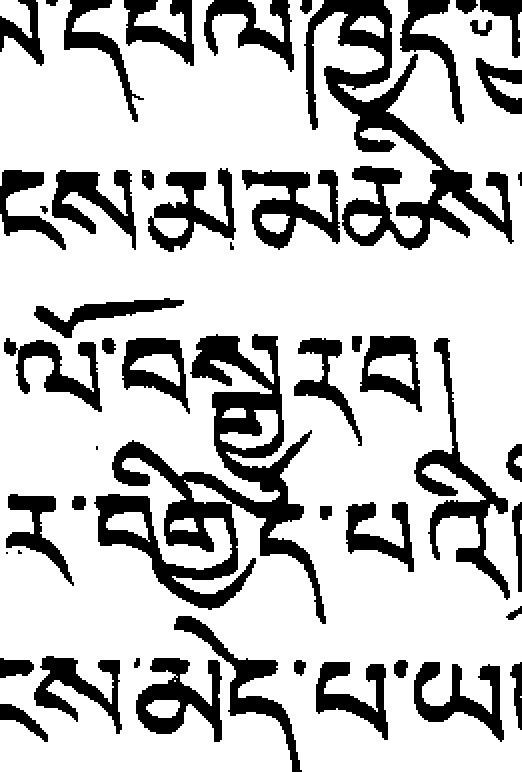 དཔལ་ཁྱད་
ངས་མ་མཆིས
ལོ་བསྒྱུར་བ།
ར་བགྱིད་པའི
ངས་མེད་པ་ཡ